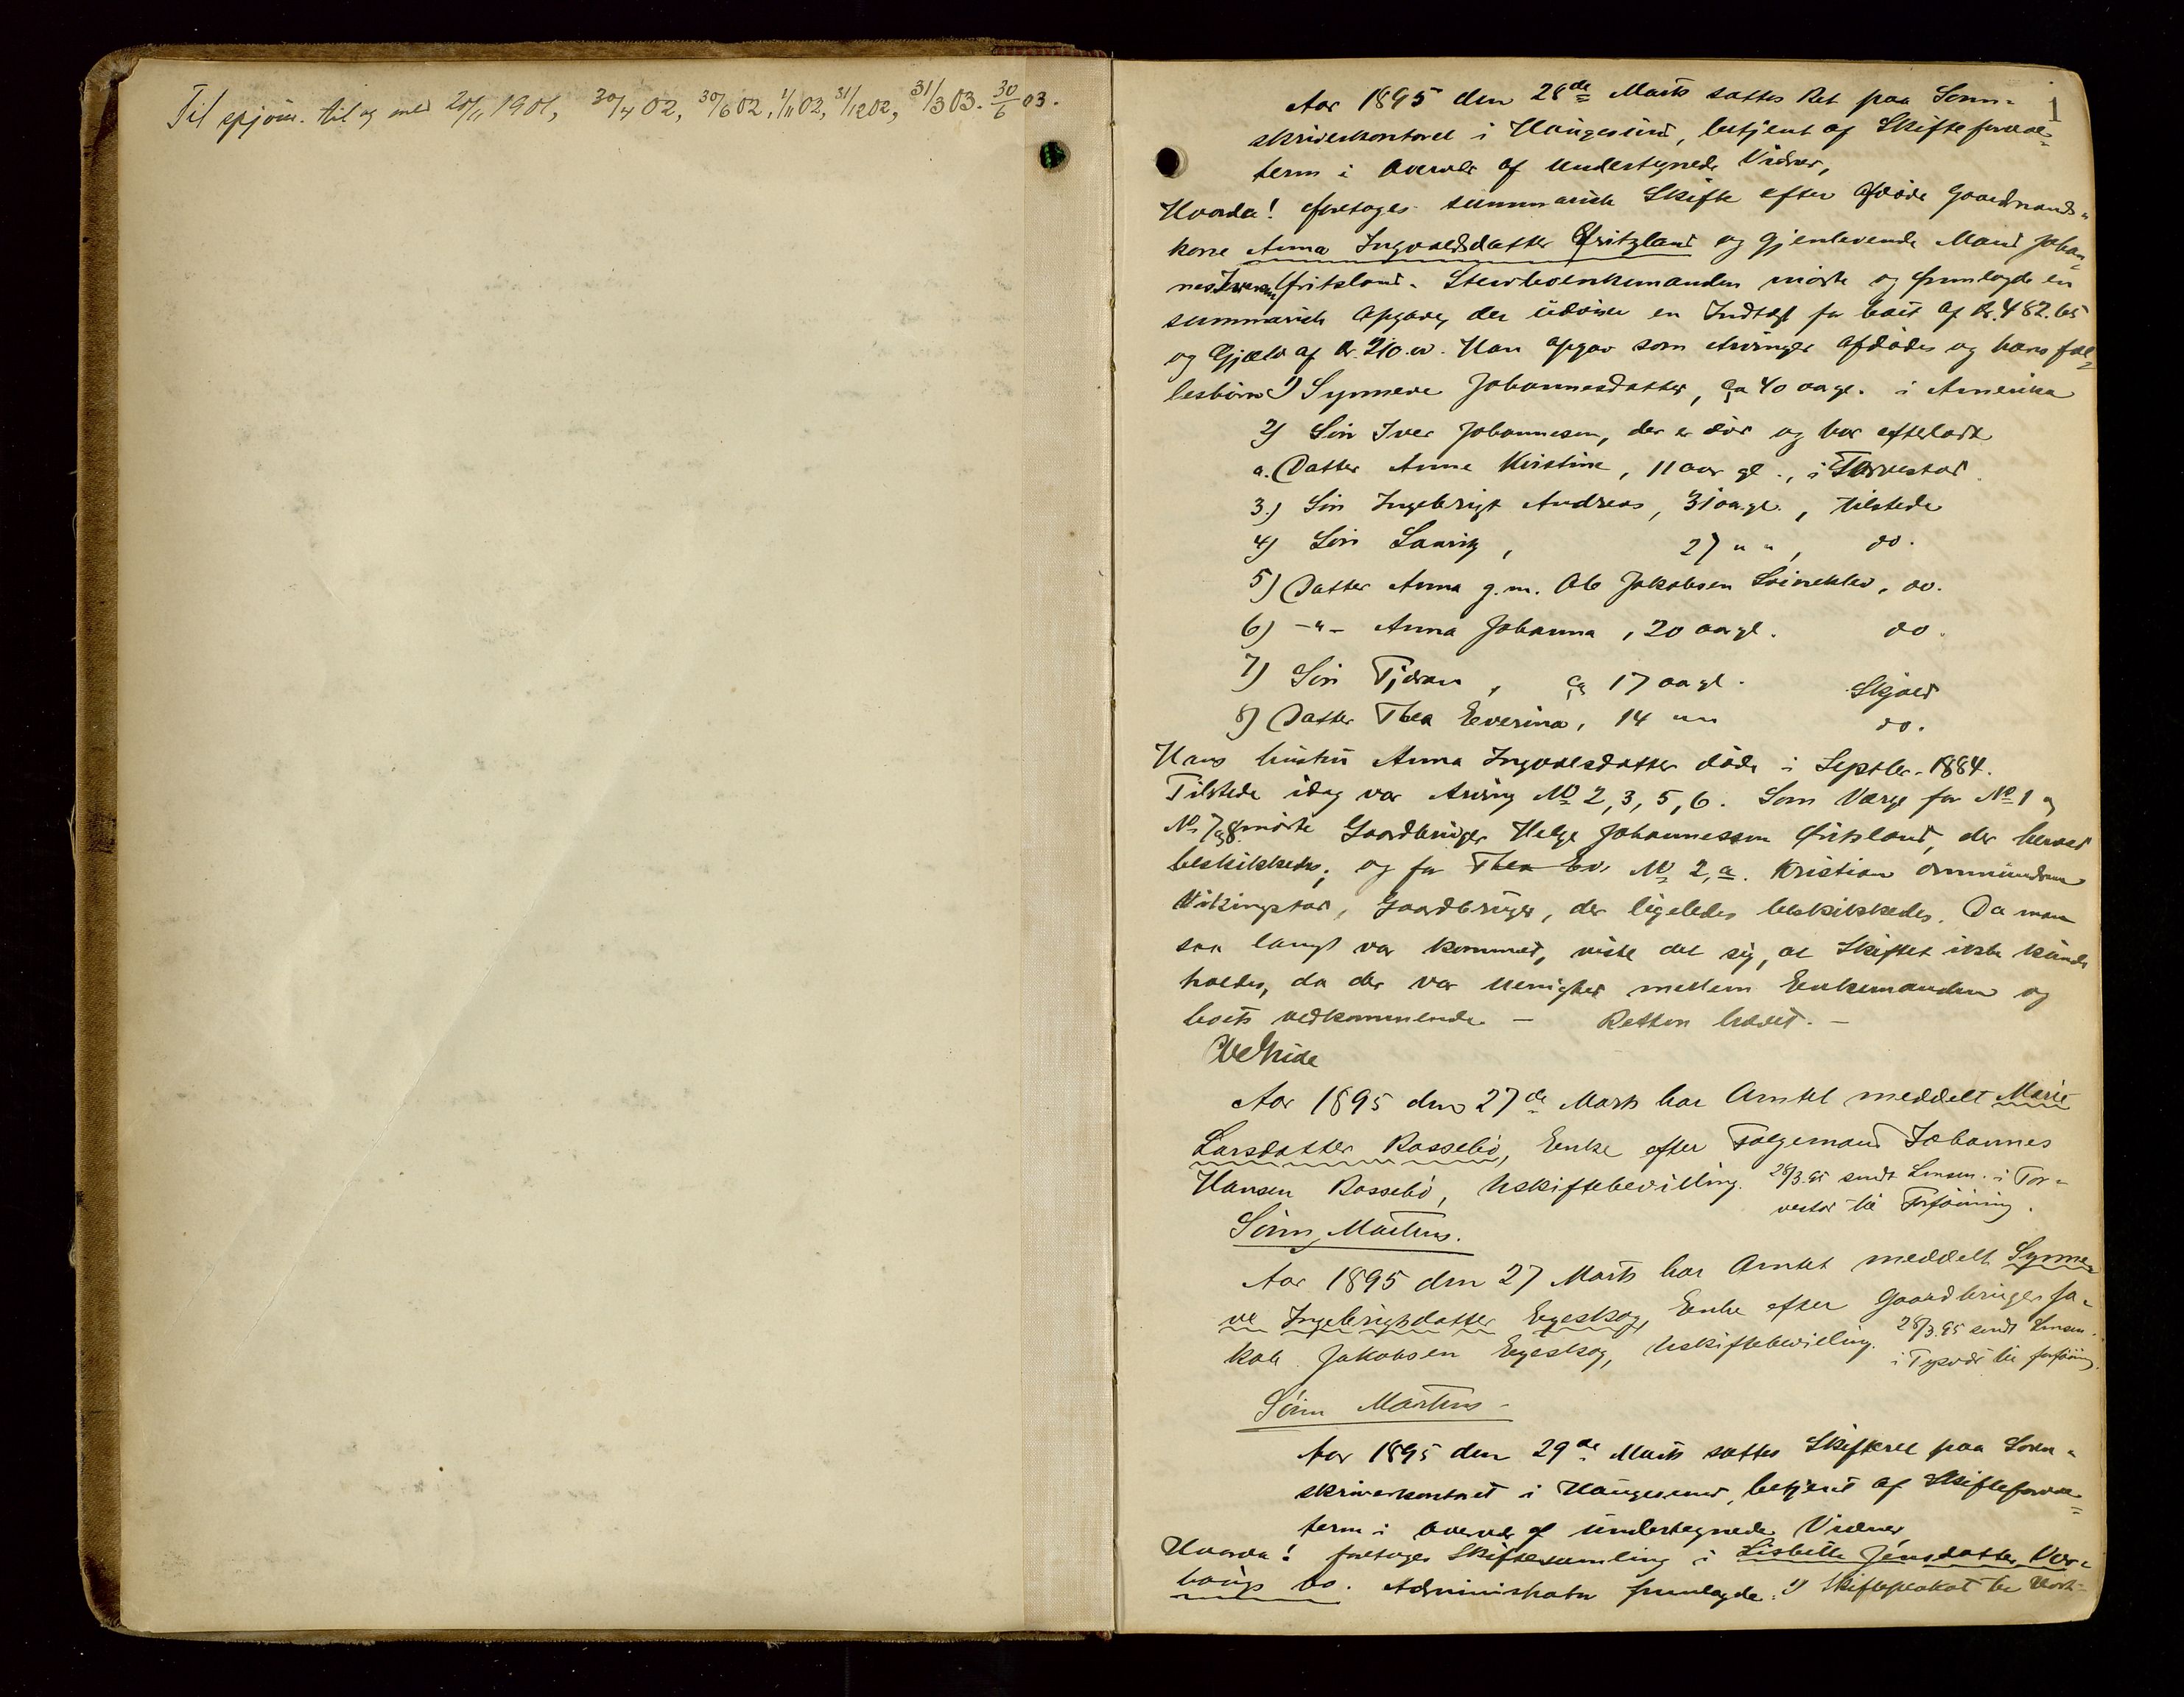 Til spjøm. til og med 20/11 1901, 30/4 02, 30/6 02, 1/11 02, 31/12 02, 31/3 03. 30/6 03.
1
Aar 1895 den 28de Marts sattes Ret paa Soren-
skriverkontoret i Haugesund, betjent af Skifteforval-
teren i Overvær af undertegnede Vidner,
Hvorda! foretoges summarisk Skifte efter afdøde Gaardmands-
kone Anna Ingvaldsdatter Fritzland og gjenlevende Mand Johan-
nes Iversen Fritsland. Stervboenkemanden mødte og fremlagde en
summarisk Opgave, der udviser en Indtægt for boet af Kr. 482.65
og Gjæld af Kr. 210.00. Han opgav som Arvinger afdødes og hans fæl-
lesbørn 1) Synneve Johannesdatter, ca 40 aar gl. i Amerika
2) Søn Iver Johannesen, der er død og har efterladt
a. Datter Anne Kirstine, 11 aar gl., i Torvestad
3.) Søn Ingebrigt Andreas, 31 aar gl., tilstede
4) Søn Lauritz, 27 " ", do.
5) Datter Anna g.m. Ole Jakobsen, do.
6) -"- Anna Johanna, 20 aar gl. do.
7) Søn Tjøran, ca 17 aar gl. Skjold
8) Datter Thea Severina, 14 " " do.
Hans hustru Anna Ingvaldsdatter døde i Septbr. 1884.
Tilstede idag var Arving No 2, 3, 5, 6. Som Værge for No 1 og
No 7 og 8 mødte Gaardbruger Helge Johannessen Fritsland, der herved
beskikkedes; og for Thea Ev. No 2, a. Kristian Ommundsen
Vikingstad, Gaardbruger, der ligeledes beskikkedes. Da man
saa langt var kommet, viste det sig, at Skiftet ikke kunde
holdes, da der var uenighed mellem Enkemanden og
boets vedkommende. — Retten hævet. —
Aar 1895 den 27de Marts har Amtet meddelt Marie
Larsdatter Rossebø, Enke efter Folgemand Johannes
Hansen Rossebø, Uskiftebevilling. 28/3.95 sendt Lensm. i Tor-
vestad til Forføining.
Sørin Martens.
Aar 1895 den 27 Marts har Amtet meddelt Synne-
ve Ingebrigtsdatter Eegeskog, Enke efter Gaardbruger Ja-
kob Jakobsen Eegeskog, Uskiftebevilling. 28/3.95 sendt Lensm.
i Tysvær til forføining.
Sørin Martens -
Aar 1895 den 29de Marts sattes Skifteret paa Soren-
skriverkontoret i Haugesund, betjent af Skifteforval-
teren i Overvær af undertegnede Vidner
Hvorda! foretoges Skiftesamling i Lisbette Jensdatter Vor-
haugs bo. Administrator fremlagde: 1) Skifteplakat til